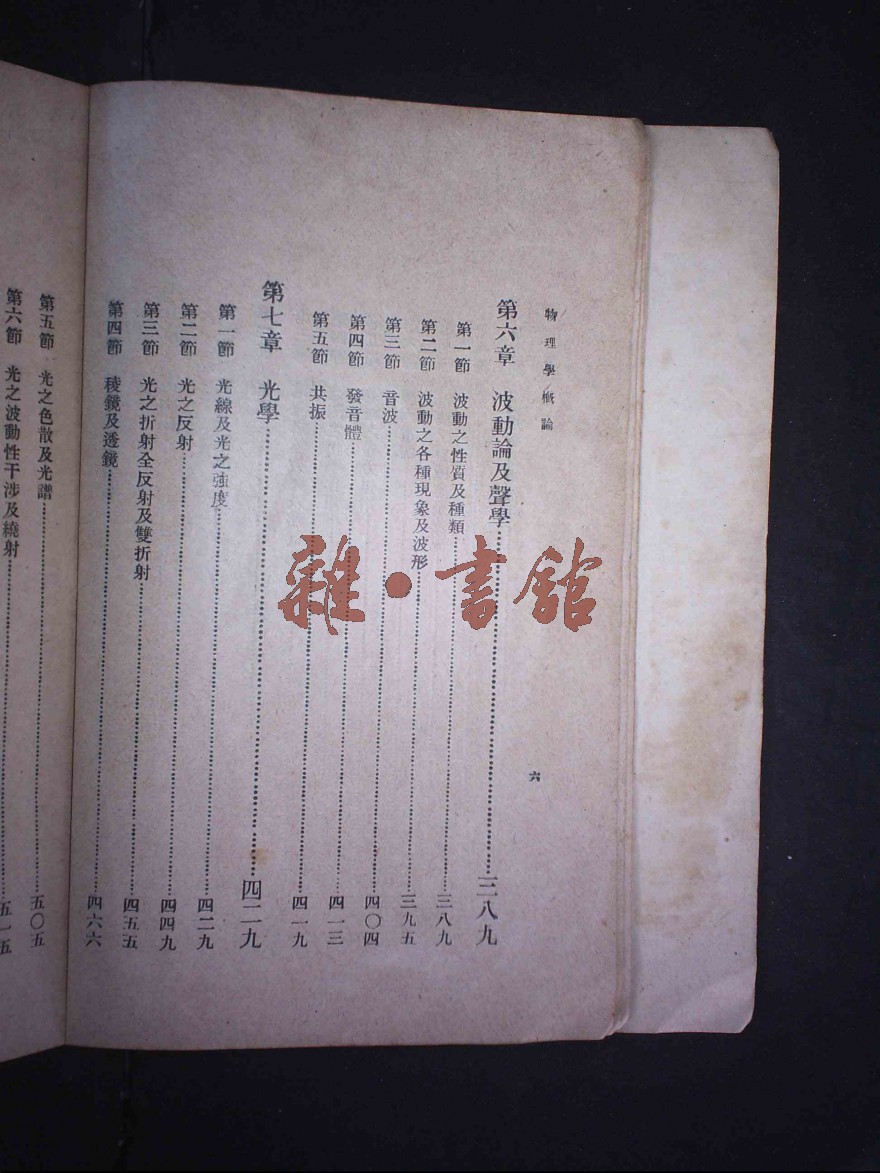 物理學概論
六
第六章 波動論及聲學 三八九
第一節 波動之性質及種類 三八九
第二節 波動之各種現象及波形 三九五
第三節 音波 四〇四
第四節 發音體 四一三
第五節 共振 四一九
第七章 光學 四二九
第一節 光線及光之強度 四二九
第二節 光之反射 四四九
第三節 光之折射全反射及雙折射 四五五
第四節 稜鏡及透鏡 四六六
第五節 光之色散及光譜 五〇五
第六節 光之波動性干涉及繞射 五一五
雜·書館